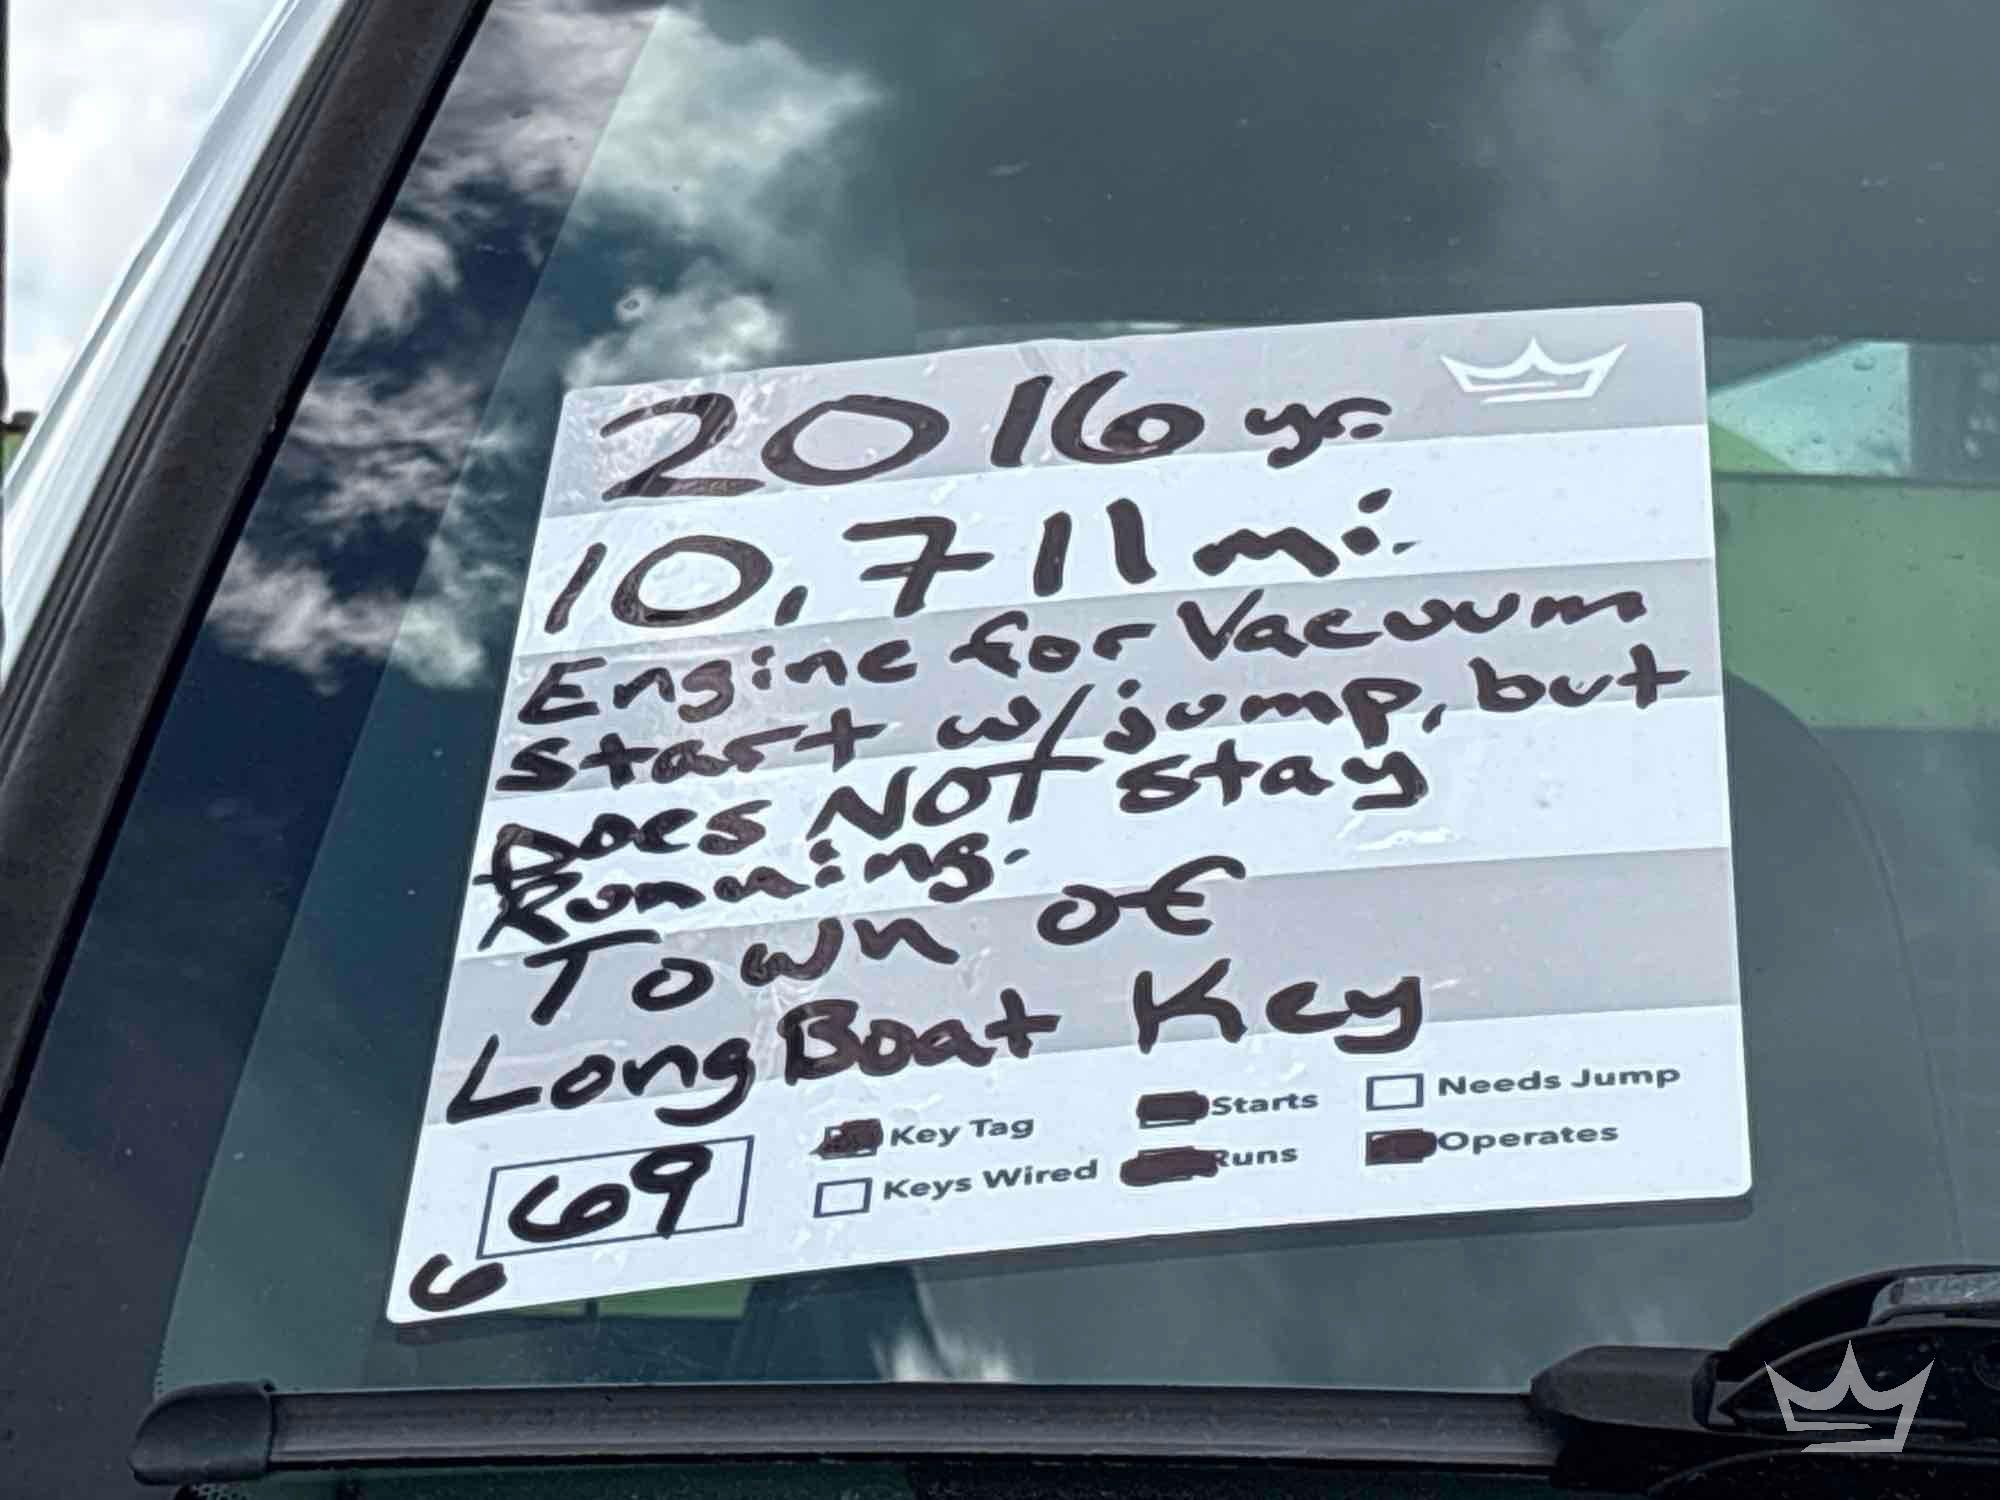 2016 yr.
10,711 mi.
Engine for Vacuum
start w/jump, but
Does Not stay
Running.
Town of
Long Boat Key
69
6
Key Tag
Starts
Needs Jump
Keys Wired
Runs
Operates